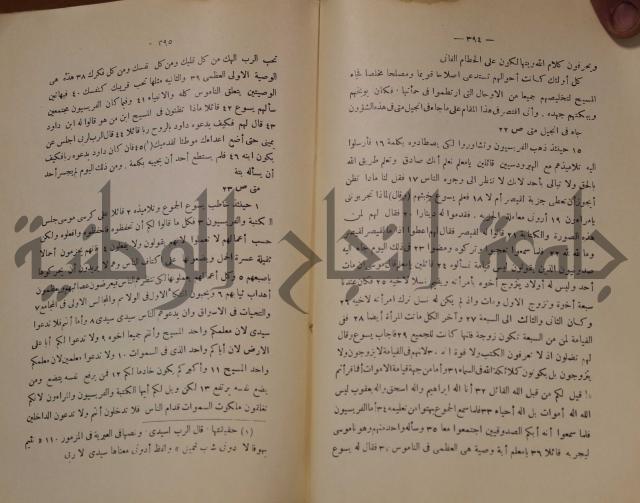 — ٣٩٤ —
ويحرفون كلام الله وبيتها لكون على الحطام الفانى
كل أولئك كانت أحوالهم تستدعى اصلاحا قويما ومصلحا مخلصا فجاء
المسيح لتخليصهم جميعا من الاوحال التى ارتطموا فى حمأتها . فكان يوبخهم
ويبكتهم جهده . وأنى أقتصر فى هذا المقام على ماجاء فى انجيل متى فى هذه الشؤون
جاء فى انجيل متى ص ٢٢
١٥ حينئذ ذهب الفريسيون وتشاوروا لكى يصطادوه بكلمة ١٦ فأرسلوا
اليه تلاميذهم مع الهيرودسيين قائلين يامعلم نعلم أنك صادق وتعلم طريق الله
بالحق ولا تبالى بأحد لانك لا تنظر الى وجوه الناس ١٧ فقل لنا ماذا تظن
أيجوز أن تعطى جزية لقيصر أم لا ١٨ فعلم يسوع خبثهم وقال لماذا تجربونى
يامراءون ١٩ أرونى معاملة الجزية . فقدموا له دينارا ٢٠ فقال لهم لمن
هذه الصورة والكتابة ٢١ قالوا له لقيصر فقال لهم اعطوا اذا ما لقيصر لقيصر
وما لله لله ٢٢ فلما سمعوا تعجبوا وتركوه ومضوا ٢٣ فى ذلك اليوم جاء اليه
صدوقيون الذين يقولون ليس قيامة فسألوه ٢٤ قائلين يامعلم قال موسى ان مات
أحد وليس له أولاد يتزوج أخوه بامرأته ويقيم نسلا لاخيه ٢٥ فكان عندنا
سبعة أخوة وتزوج الاول ومات واذ لم يكن له نسل ترك امرأته لاخيه ٢٦
وكذلك الثانى والثالث الى السبعة ٢٧ وآخر الكل ماتت المرأة أيضا ٢٨ ففى
القيامة لمن من السبعة تكون زوجة فانها كانت للجميع ٢٩ فأجاب يسوع وقال
لهم تضلون اذ لا تعرفون الكتب ولا قوة الله ٣٠ لانهم فى القيامة لا يزوجون ولا
يتزوجون بل يكونون كملائكة الله فى السماء ٣١ وأما من جهة قيامة الاموات أفما قرأتم
ما قيل لكم من قبل الله القائل ٣٢ أنا اله ابراهيم واله اسحق واله يعقوب ليس
الله اله أموات بل اله أحياء ٣٣ فلما سمع الجموع بهتوا من تعليمه ٣٤ أما الفريسيون
فلما سمعوا أنه أبكم الصدوقيين اجتمعوا معا ٣٥ وسأله واحد منهم وهو ناموسى
ليجربه قائلا ٣٦ يامعلم أية وصية هى العظمى فى الناموس ٣٧ فقال له يسوع
٣٩٥
تحب الرب الهك من كل قلبك ومن كل نفسك ومن كل فكرك ٣٨ هذه هى
الوصية الاولى العظمى ٣٩ والثانية مثلها تحب قريبك كنفسك ٤٠ فبهاتين
الوصيتين يتعلق الناموس كله والانبياء ٤١ وفيما كان الفريسيون مجتمعين
سألهم يسوع ٤٢ قائلا ماذا تظنون فى المسيح ابن من هو قالوا له ابن داود
٤٣ قال لهم فكيف يدعوه داود بالروح ربا قائلا ٤٤ قال الرب لربى اجلس عن
يمينى حتى أضع اعداءك موطئا لقدميك (١) ٤٥ فان كان داود يدعوه ربا فكيف
يكون ابنه ٤٦ فلم يستطع أحد أن يجيبه بكلمة . ومن ذلك اليوم لم يجسر أحد
أن يسأله بتة
متى ص ٢٣
١ حينئذ خاطب يسوع الجموع وتلاميذه ٢ قائلا على كرسى موسى جلس
الكتبة والفريسيون ٣ فكل ما قالوا لكم أن تحفظوه فاحفظوه وافعلوه ولكن
حسب أعمالهم لا تعملوا لانهم يقولون ولا يفعلون ٤ فانهم يحزمون أحمالا
ثقيلة عسرة الحمل ويضعونها على أكتاف الناس وهم لا يريدون أن يحركوها
باصبعهم ٥ وكل أعمالهم يعملونها لكى تنظرهم الناس فيعرضون عصائبهم ويعظمون
أهداب ثيابهم ٦ ويحبون المتكأ الاول فى الولائم والمجالس الاولى فى المجامع ٧
والتحيات فى الاسواق وان يدعوهم الناس سيدى سيدى ٨ وأما أنتم فلا تدعوا
سيدى لان معلمكم واحد المسيح وأنتم جميعا اخوة ٩ ولا تدعوا لكم أبا على
الارض لان أباكم واحد الذى فى السموات ١٠ ولا تدعوا معلمين لان معلمكم
واحد المسيح ١١ وأكبركم يكون خادما لكم ١٢ فمن يرفع نفسه يتضع ومن
يضع نفسه يرتفع ١٣ لكن ويل لكم أيها الكتبة والفريسيون والمراءون لانكم
تغلقون ملكوت السموات قدام الناس فلا تدخلون أنتم ولا تدعون الداخلين
(١) حقيقتها . قال الرب لسيدى . ونصها فى العبرية فى المزمور ١١٠